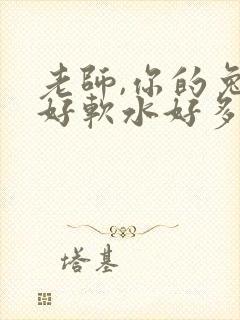 老師,你的兔
好軟水好多
塔基